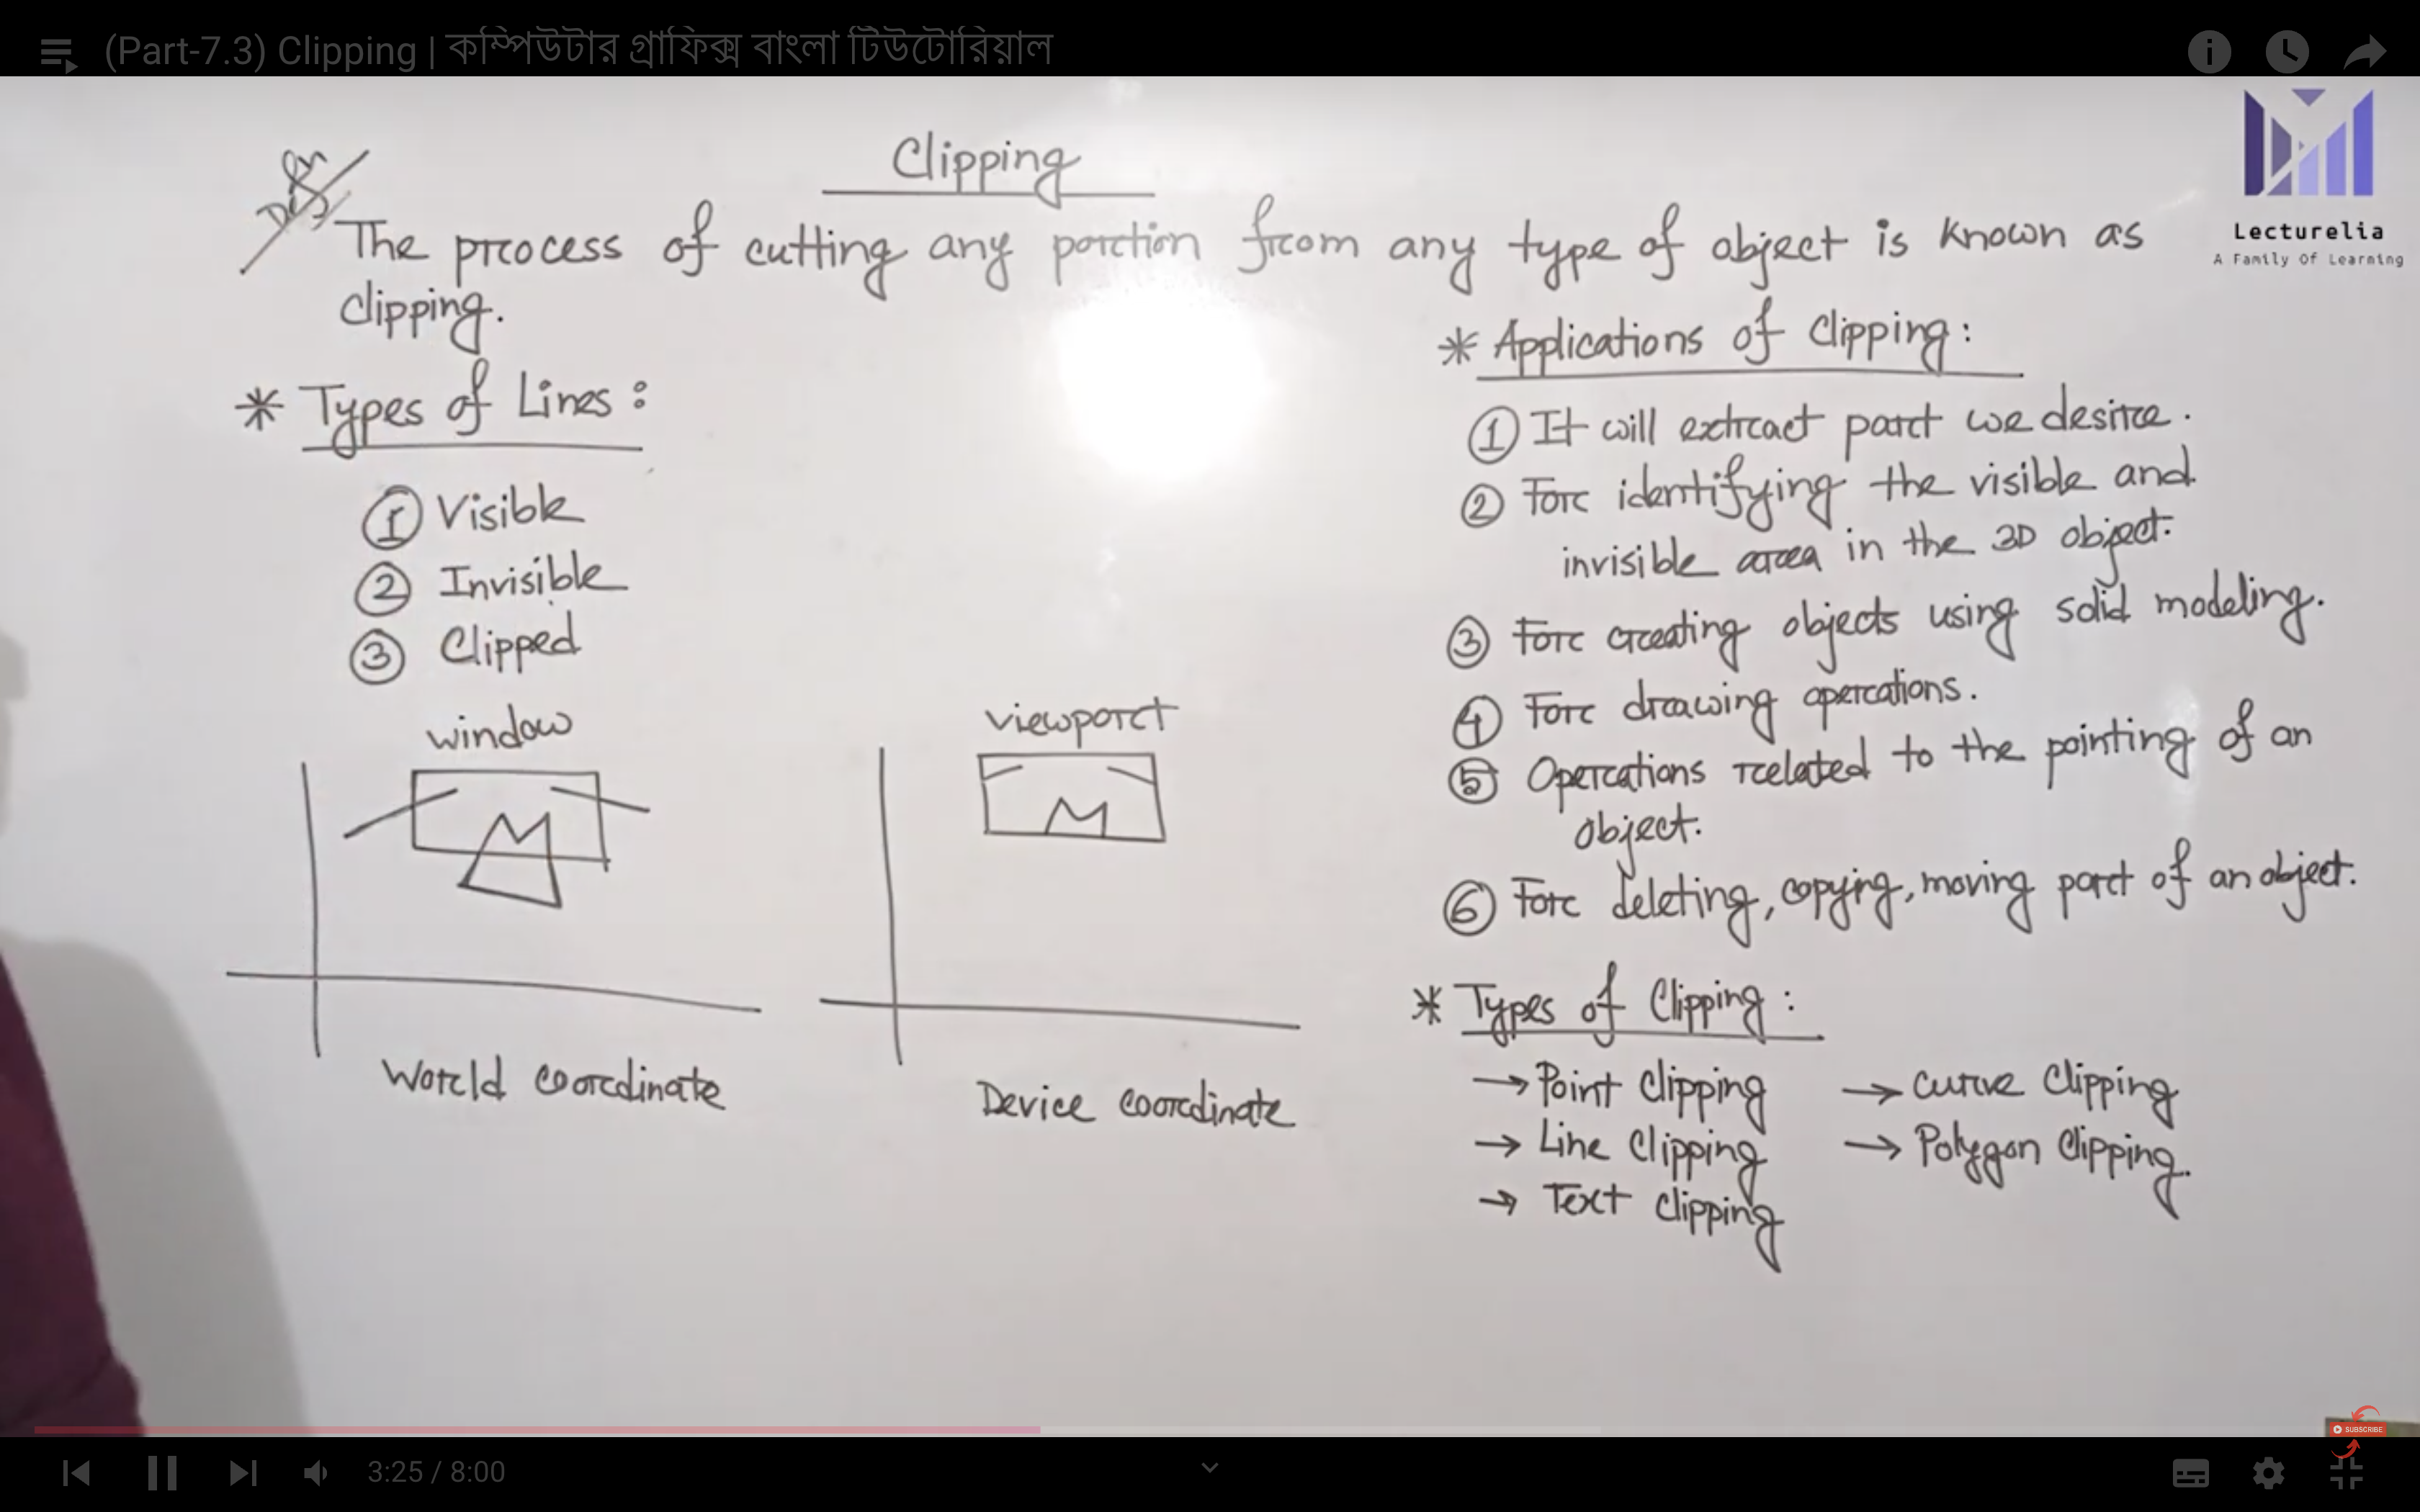 (Part-7.3) Clipping | কম্পিউটার গ্রাফিক্স বাংলা টিউটোরিয়াল
Clipping
The process of cutting any portion from any type of object is known as
clipping.
* Types of Lines:
① Visible
② Invisible
③ Clipped
window
World coordinate
viewport
Device coordinate
* Applications of Clipping:
① It will extract part we desire.
② For identifying the visible and
invisible area in the 3D object.
③ For creating objects using solid modeling.
④ For drawing operations.
⑤ Operations related to the pointing of an
object.
⑥ For deleting, copying, moving part of an object.
* Types of Clipping:
→ Point Clipping
→ Line Clipping
→ Text Clipping
→ Curve Clipping
→ Polygon Clipping.
Lecturelia
A Family Of Learning
SUBSCRIBE
3:25 / 8:00